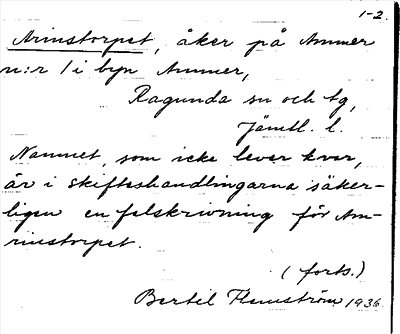 1-2.
Arinstorpet, åker på Ammer
n:r 1 i byn Ammer,
Ragunda sn och tg,
Jämtl. l.
Namnet, som icke lever kvar,
är i skifteshandlingarna säker-
ligen en felskrivning för Am-
rinstorpet.
(forts.)
Bertil Flemström 1936